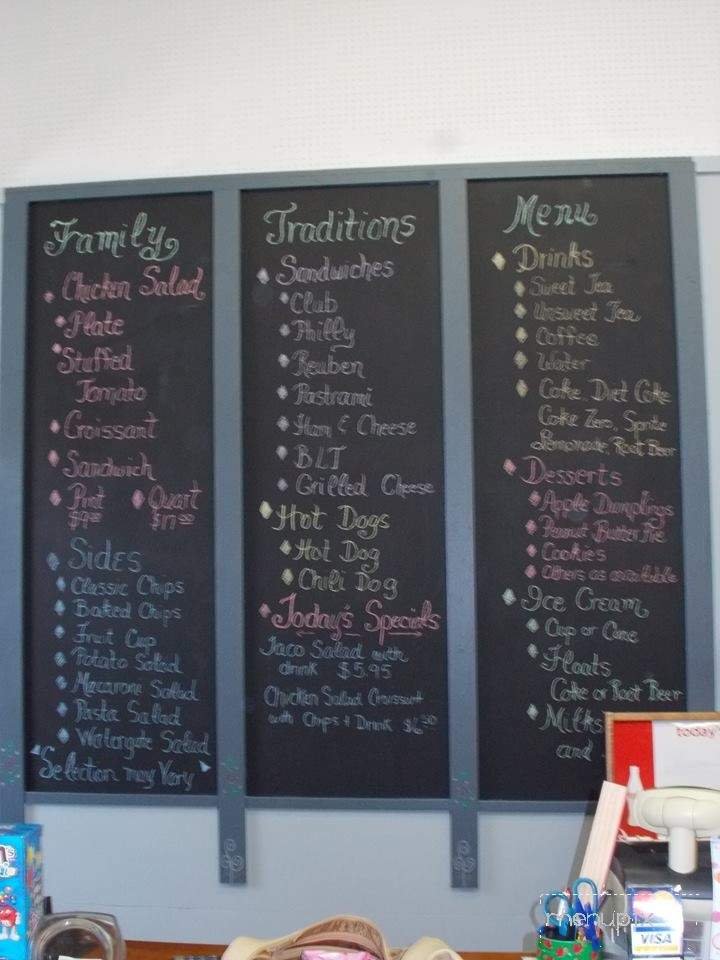 Family
Chicken Salad
Plate
Stuffed
Tomato
Croissant
Sandwich
Pint Quart
Sides
Classic Chips
Baked Chips
Fruit Cup
Potato Salad
Macaroni Salad
Pasta Salad
Watergate Salad
Selection may Vary
Traditions
Sandwiches
Club
Philly
Reuben
Pastrami
Ham & Cheese
BLT
Grilled Cheese
Hot Dogs
Hot Dog
Chili Dog
Today's Specials
Taco Salad with
drink $5.95
Chicken Salad Croissant
with Chips + Drink $6.50
Menu
Drinks
Sweet Tea
Unsweet Tea
Coffee
Water
Coke, Diet Coke
Coke Zero, Sprite
Lemonade, Root Beer
Desserts
Apple Dumplings
Peanut Butter Pie
Cookies
Others as available
Ice Cream
Cup or Cone
Floats
Coke or Root Beer
Milks
and
today's
menupix
VISA